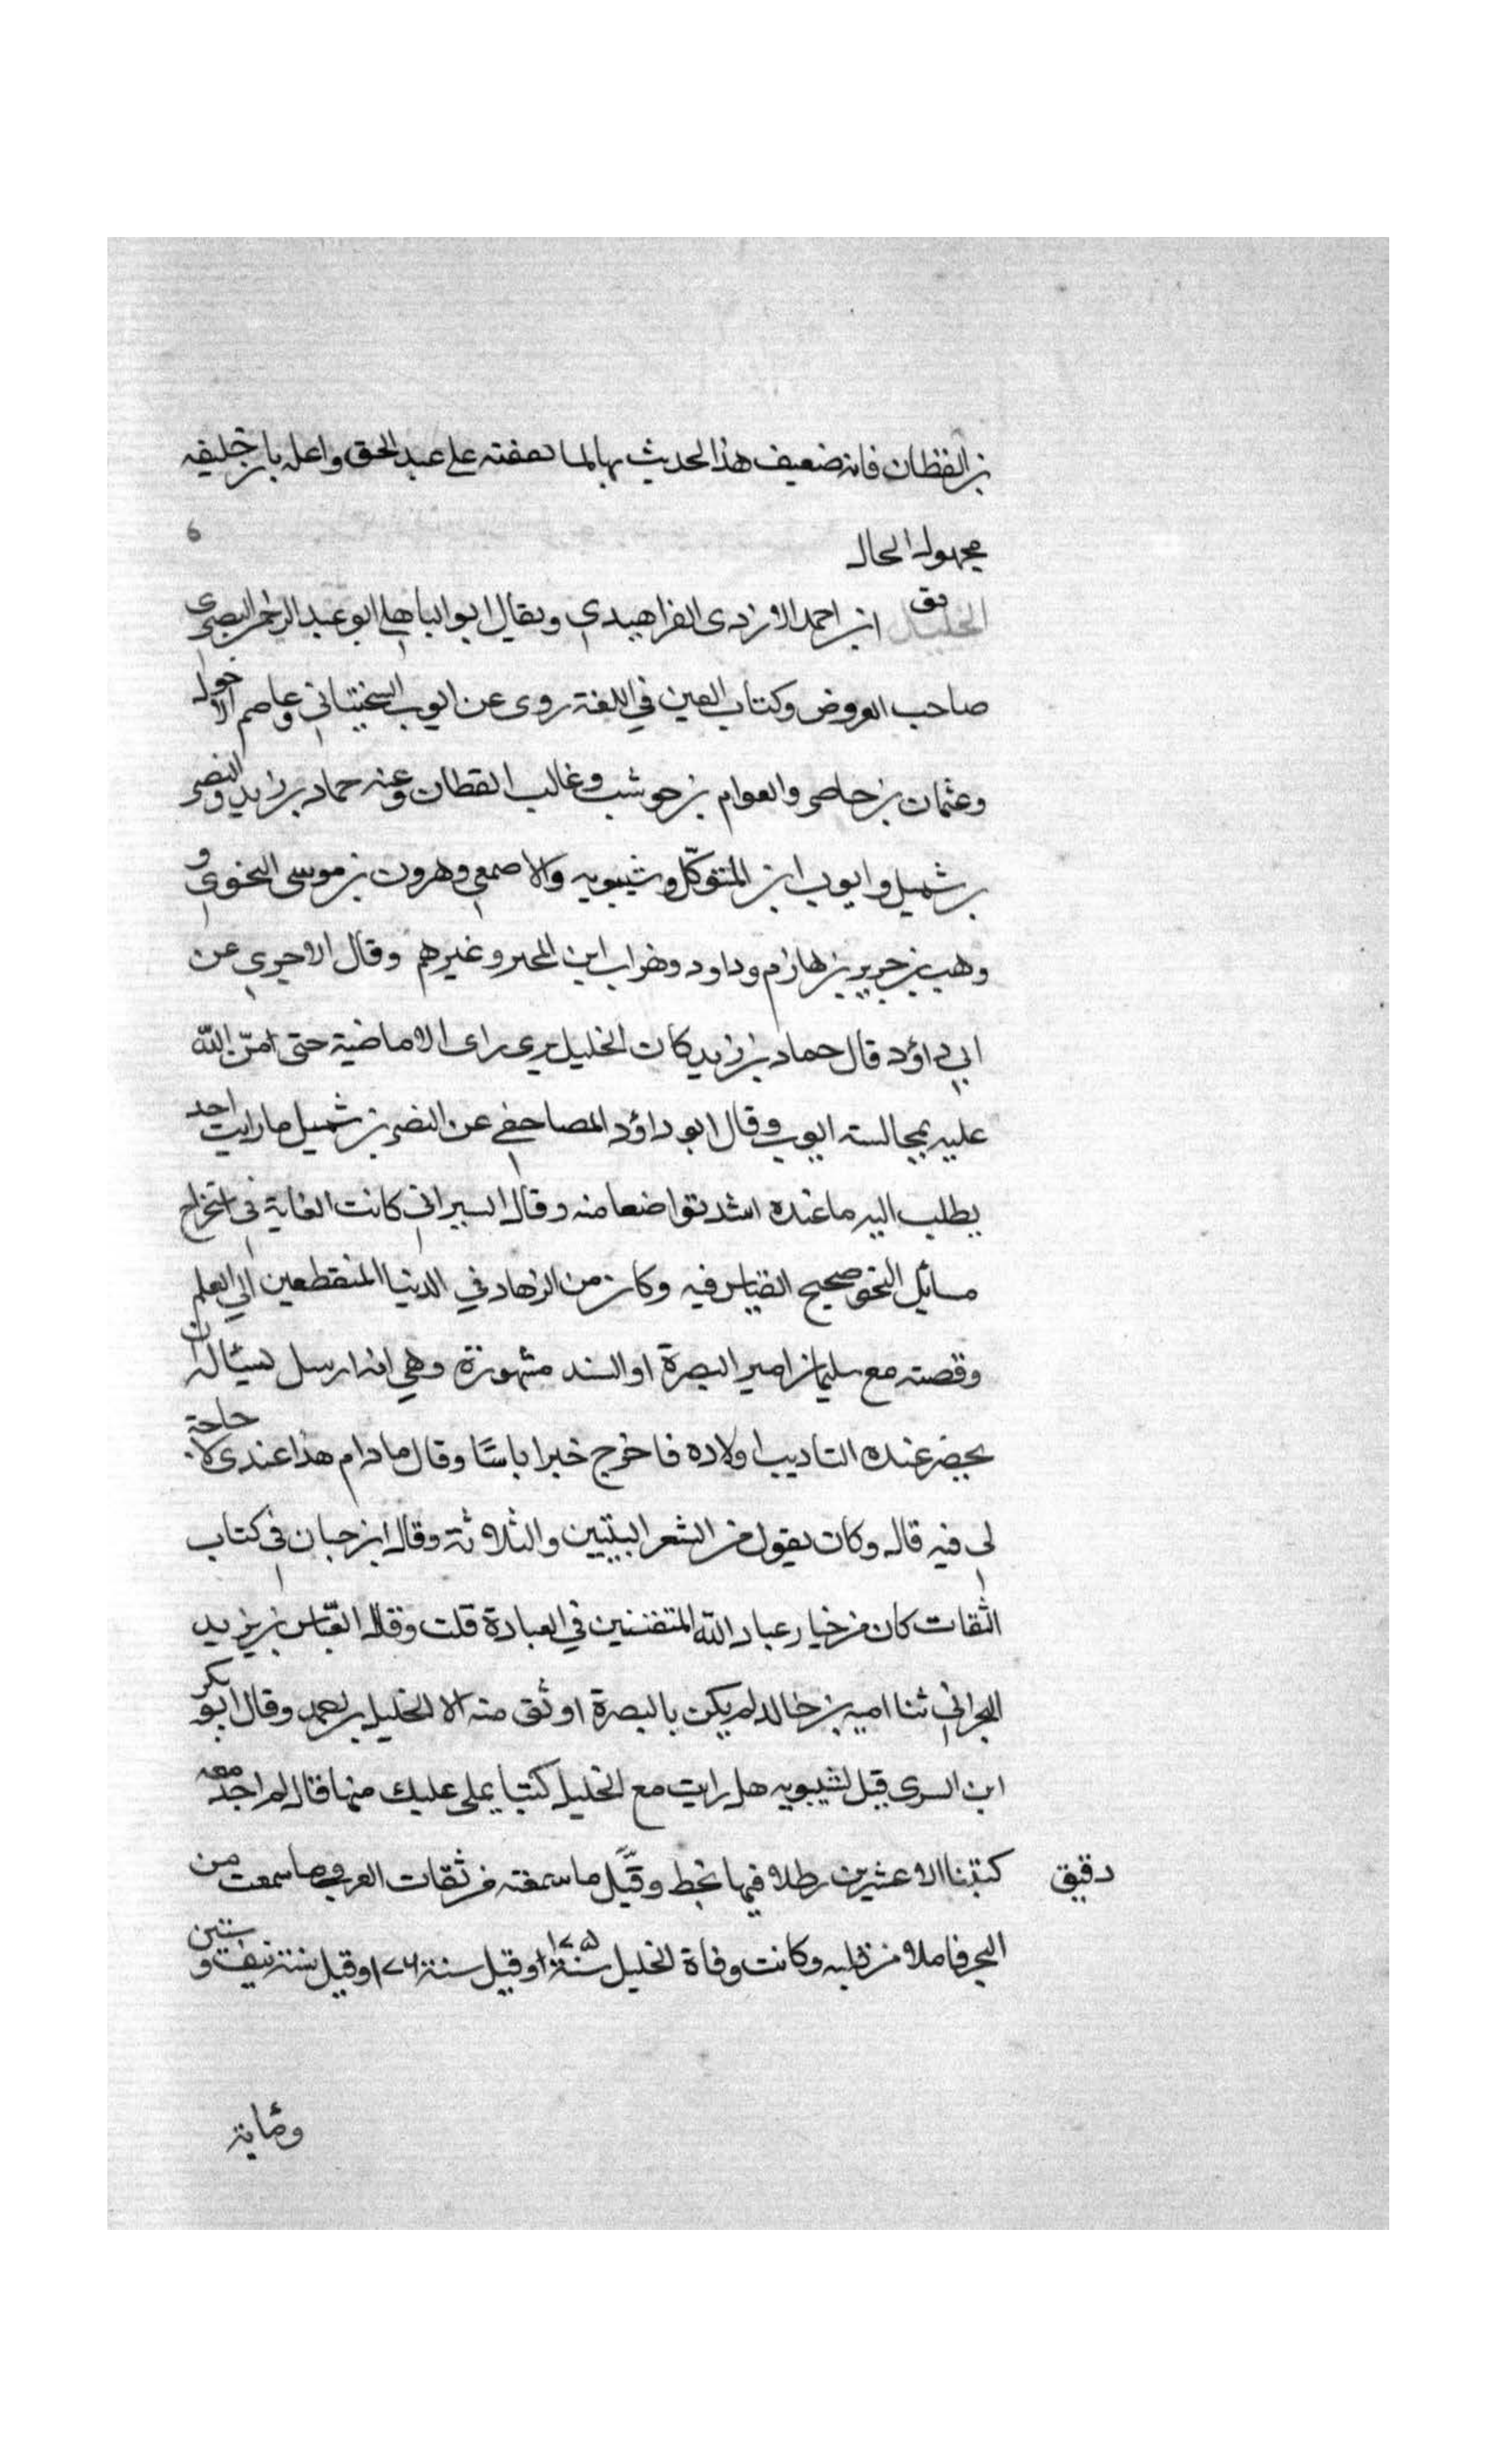 بن القطان فانه ضعيف هذا الحديث بها لما تعقبه على عبد الحق واعله بان خليفه
مجهول الحال
الخليل فق ابن احمد الازدى الفراهيدي ويقال ابو الباهلي ابو عبد الرحمن البصرى
صاحب العروض وكتاب العين في اللغة روى عن ايوب السختياني وعاصم الاحول
وعثمان بن حاصر والعوام بن حوشب وغالب القطان وعنه حماد بن زيد والنضر
بن شميل وايوب ابن المتوكّل وشيبويه والاصمعي وهرون بن موسى النحوي و
وهب بن جرير بن هازم وداود ابن المحبر وغيرهم وقال الاجري عن
ابي داؤد قال حماد بن زيد كان الخليل يرى راى الاماضية حتى امنّ الله
عليه بمجالسته ايوب وقال ابو داؤد المصاحفي عن النضر بن شميل ما رايت احد
يطلب اليه ما عنده اشد تواضعا منه وقال السيرافي كانت الغاية في استخراج
مسائل النحو صحيح القياس فيه وكان من الزهاد في الدنيا المنقطعين الي العلم
وقصته مع سليمان امير البصرة او السند مشهورة وهي انه ارسل ليسئاله ان
يحضر عنده التاديب اولاده فاخرج خبرا باسًا وقال ما دام هذا عندى لا حاجة
لي فيه قال وكان يقول من الشعر البيتين والثلاثة وقال ابن حبان في كتاب
الثقات كان من خيار عباد الله المتقننين في العبادة قلت وقال العبّاس بن يزيد
البحراني ثنا اميه بن خالد لم يكن بالبصرة اوثق منه الا الخليل بن احمد وقال ابو بكر
ابن السرى قيل لشيبويه هل رايت مع الخليل كتبا يملى عليك منها قال لم اجد معه
كتبنا الا عشرين رطلا فيها بخط دقيق وقيّل ما سمعته من ثقات العرب وما سمعت من
البحر فاملا من قلبه وكانت وفاة الخليل سنة ١٧٥ وقيل سنة ١٧٦ وقيل سنة نيف وستين
ومايه